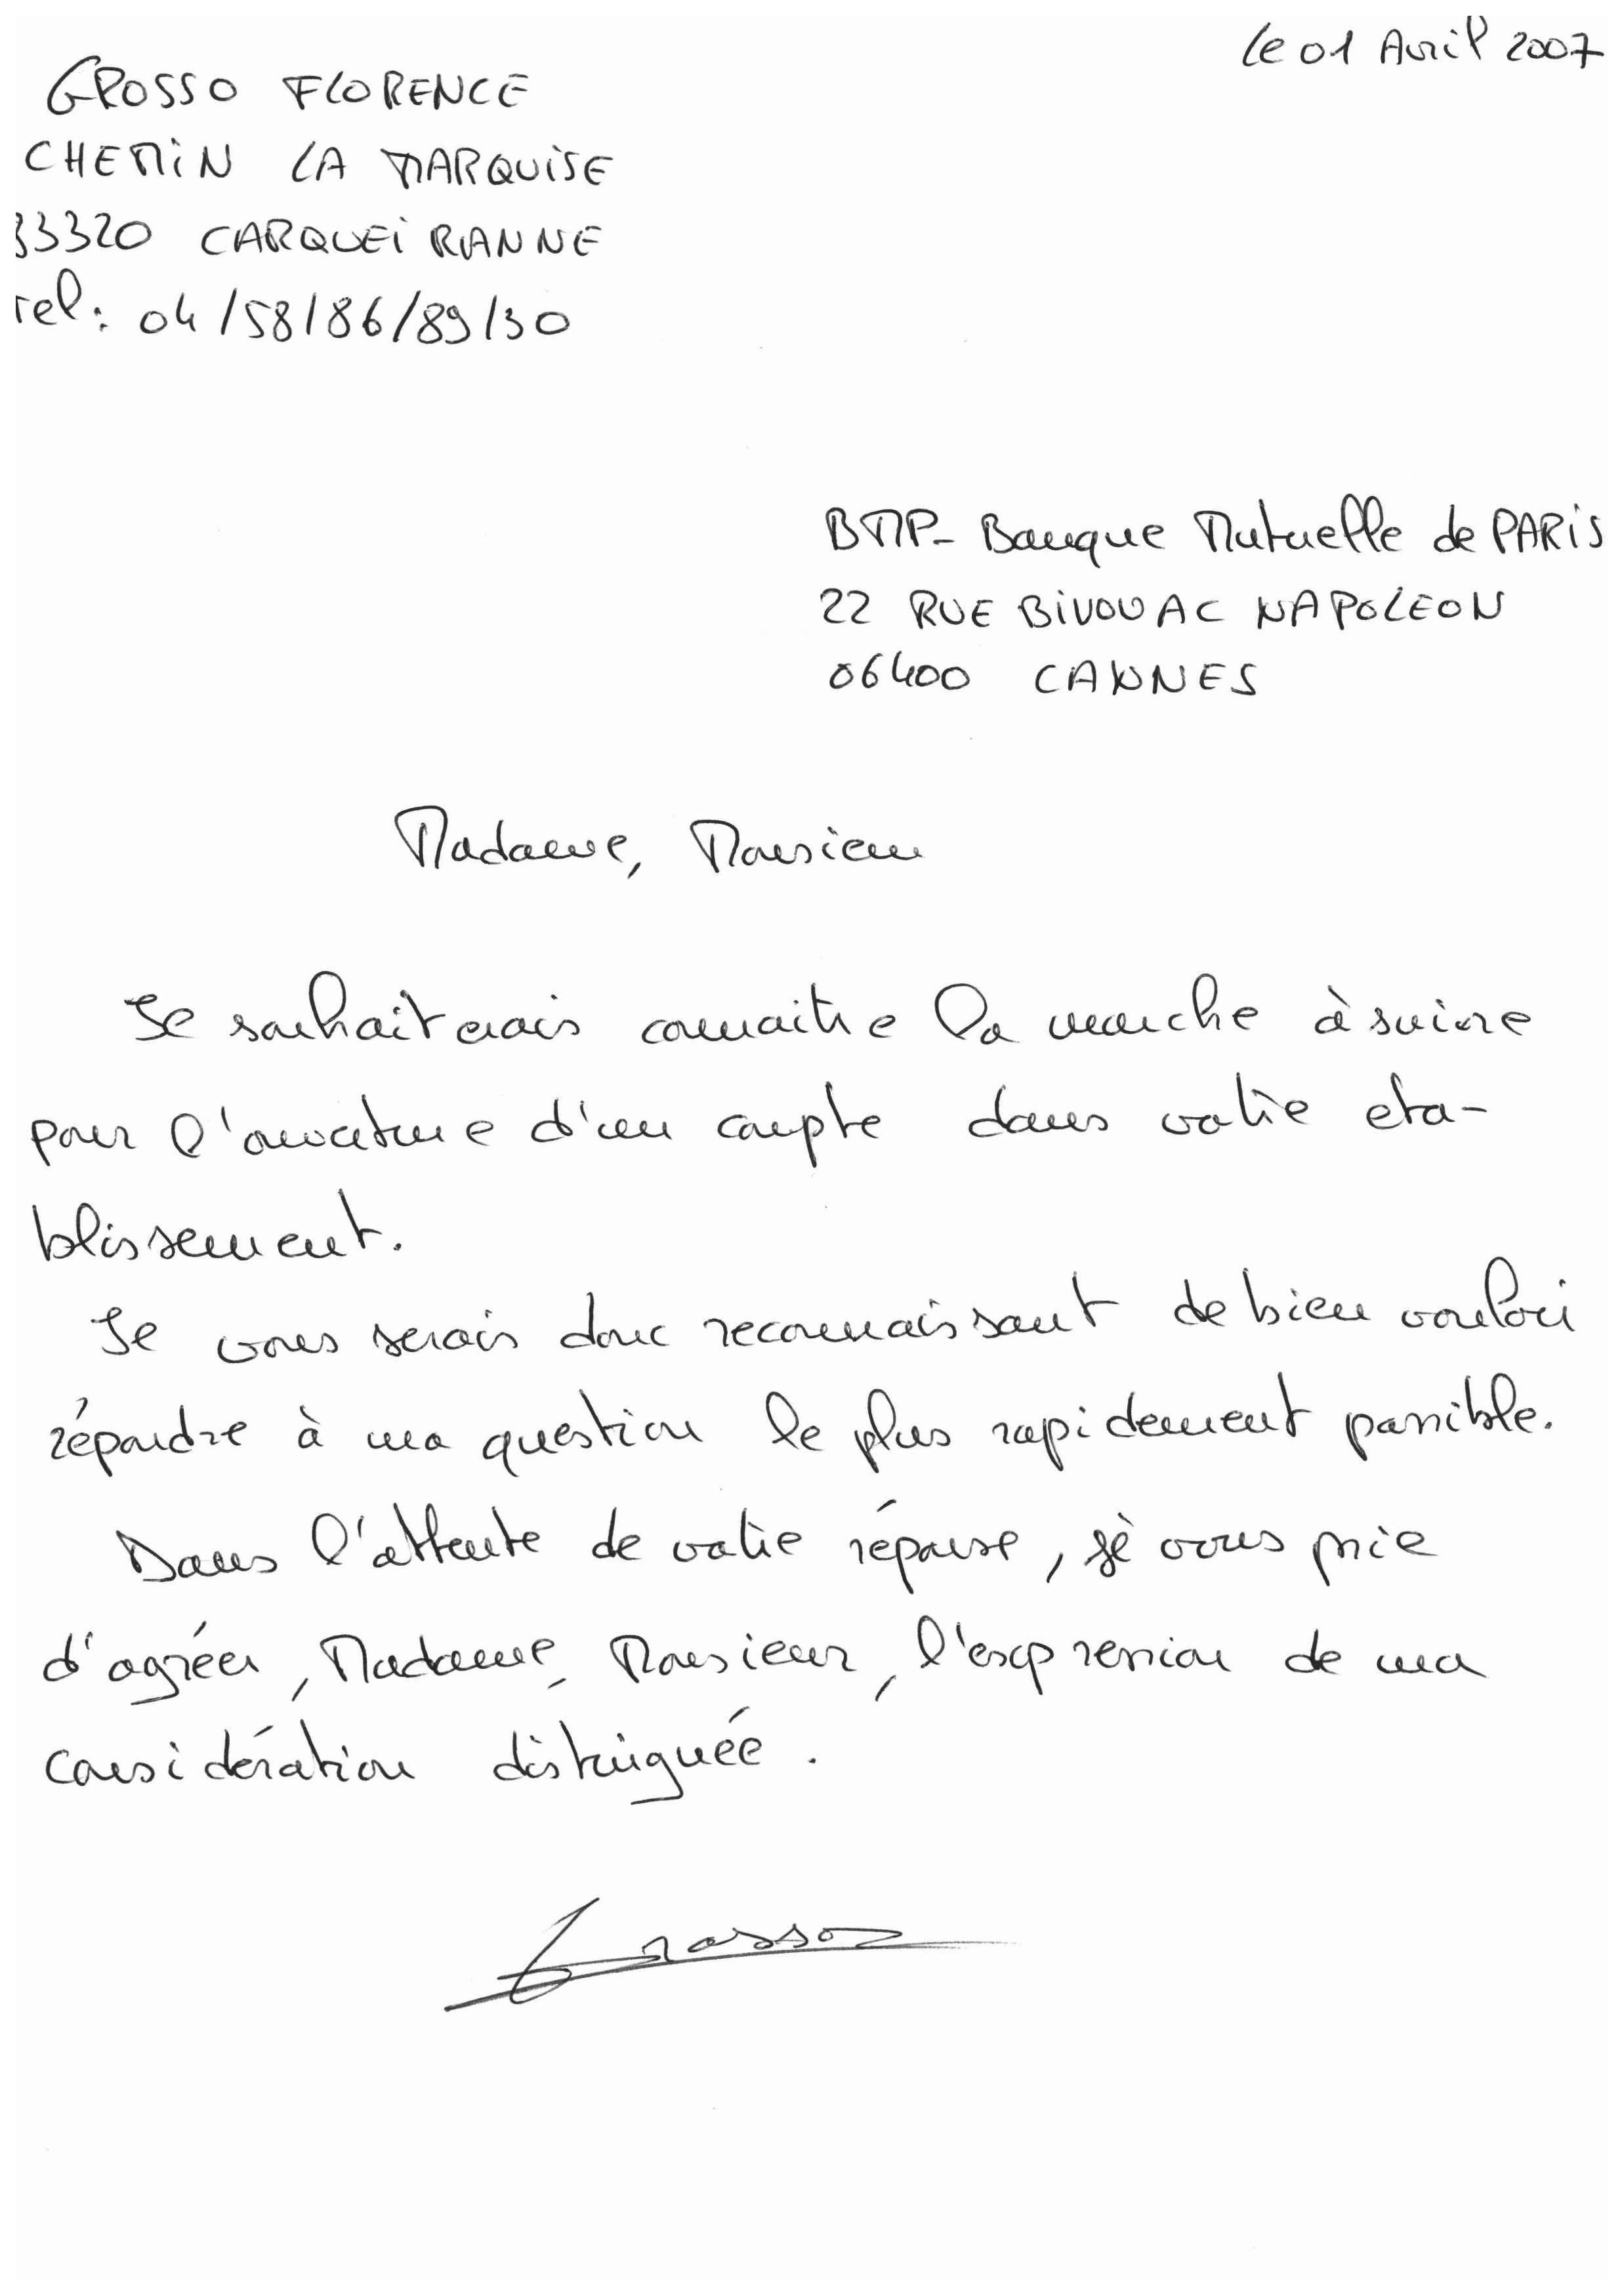 Le 01 Avril 2007
GROSSO FLORENCE
CHEMIN LA MARQUISE
33320 CARQUEIRANNE
Tel: 04/58/86/89/30
BMP- Banque Mutuelle de PARIS
22 RUE BIVOUAC NAPOLEON
06400 CANNES
Madame, Monsieur
Je souhaiterais connaitre la marche à suivre
pour l'ouverture d'un compte dans votre eta-
blissement.
Je vous serais donc reconnaissant de bien vouloir
répondre à ma question le plus rapidement possible.
Dans l'attente de votre réponse, je vous prie
d'agréer, Madame, Monsieur, l'expression de ma
considération distinguée.
Grosso